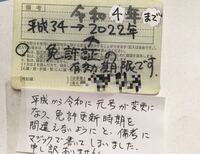 備考
令和4年まで
平成34→2022年
免許証の
有効期限です。
平成から令和に元号が変更に
なり、免許更新時期を
間違えないようにと、備考に
マジックで書いてしまいました。
申し訳ありません